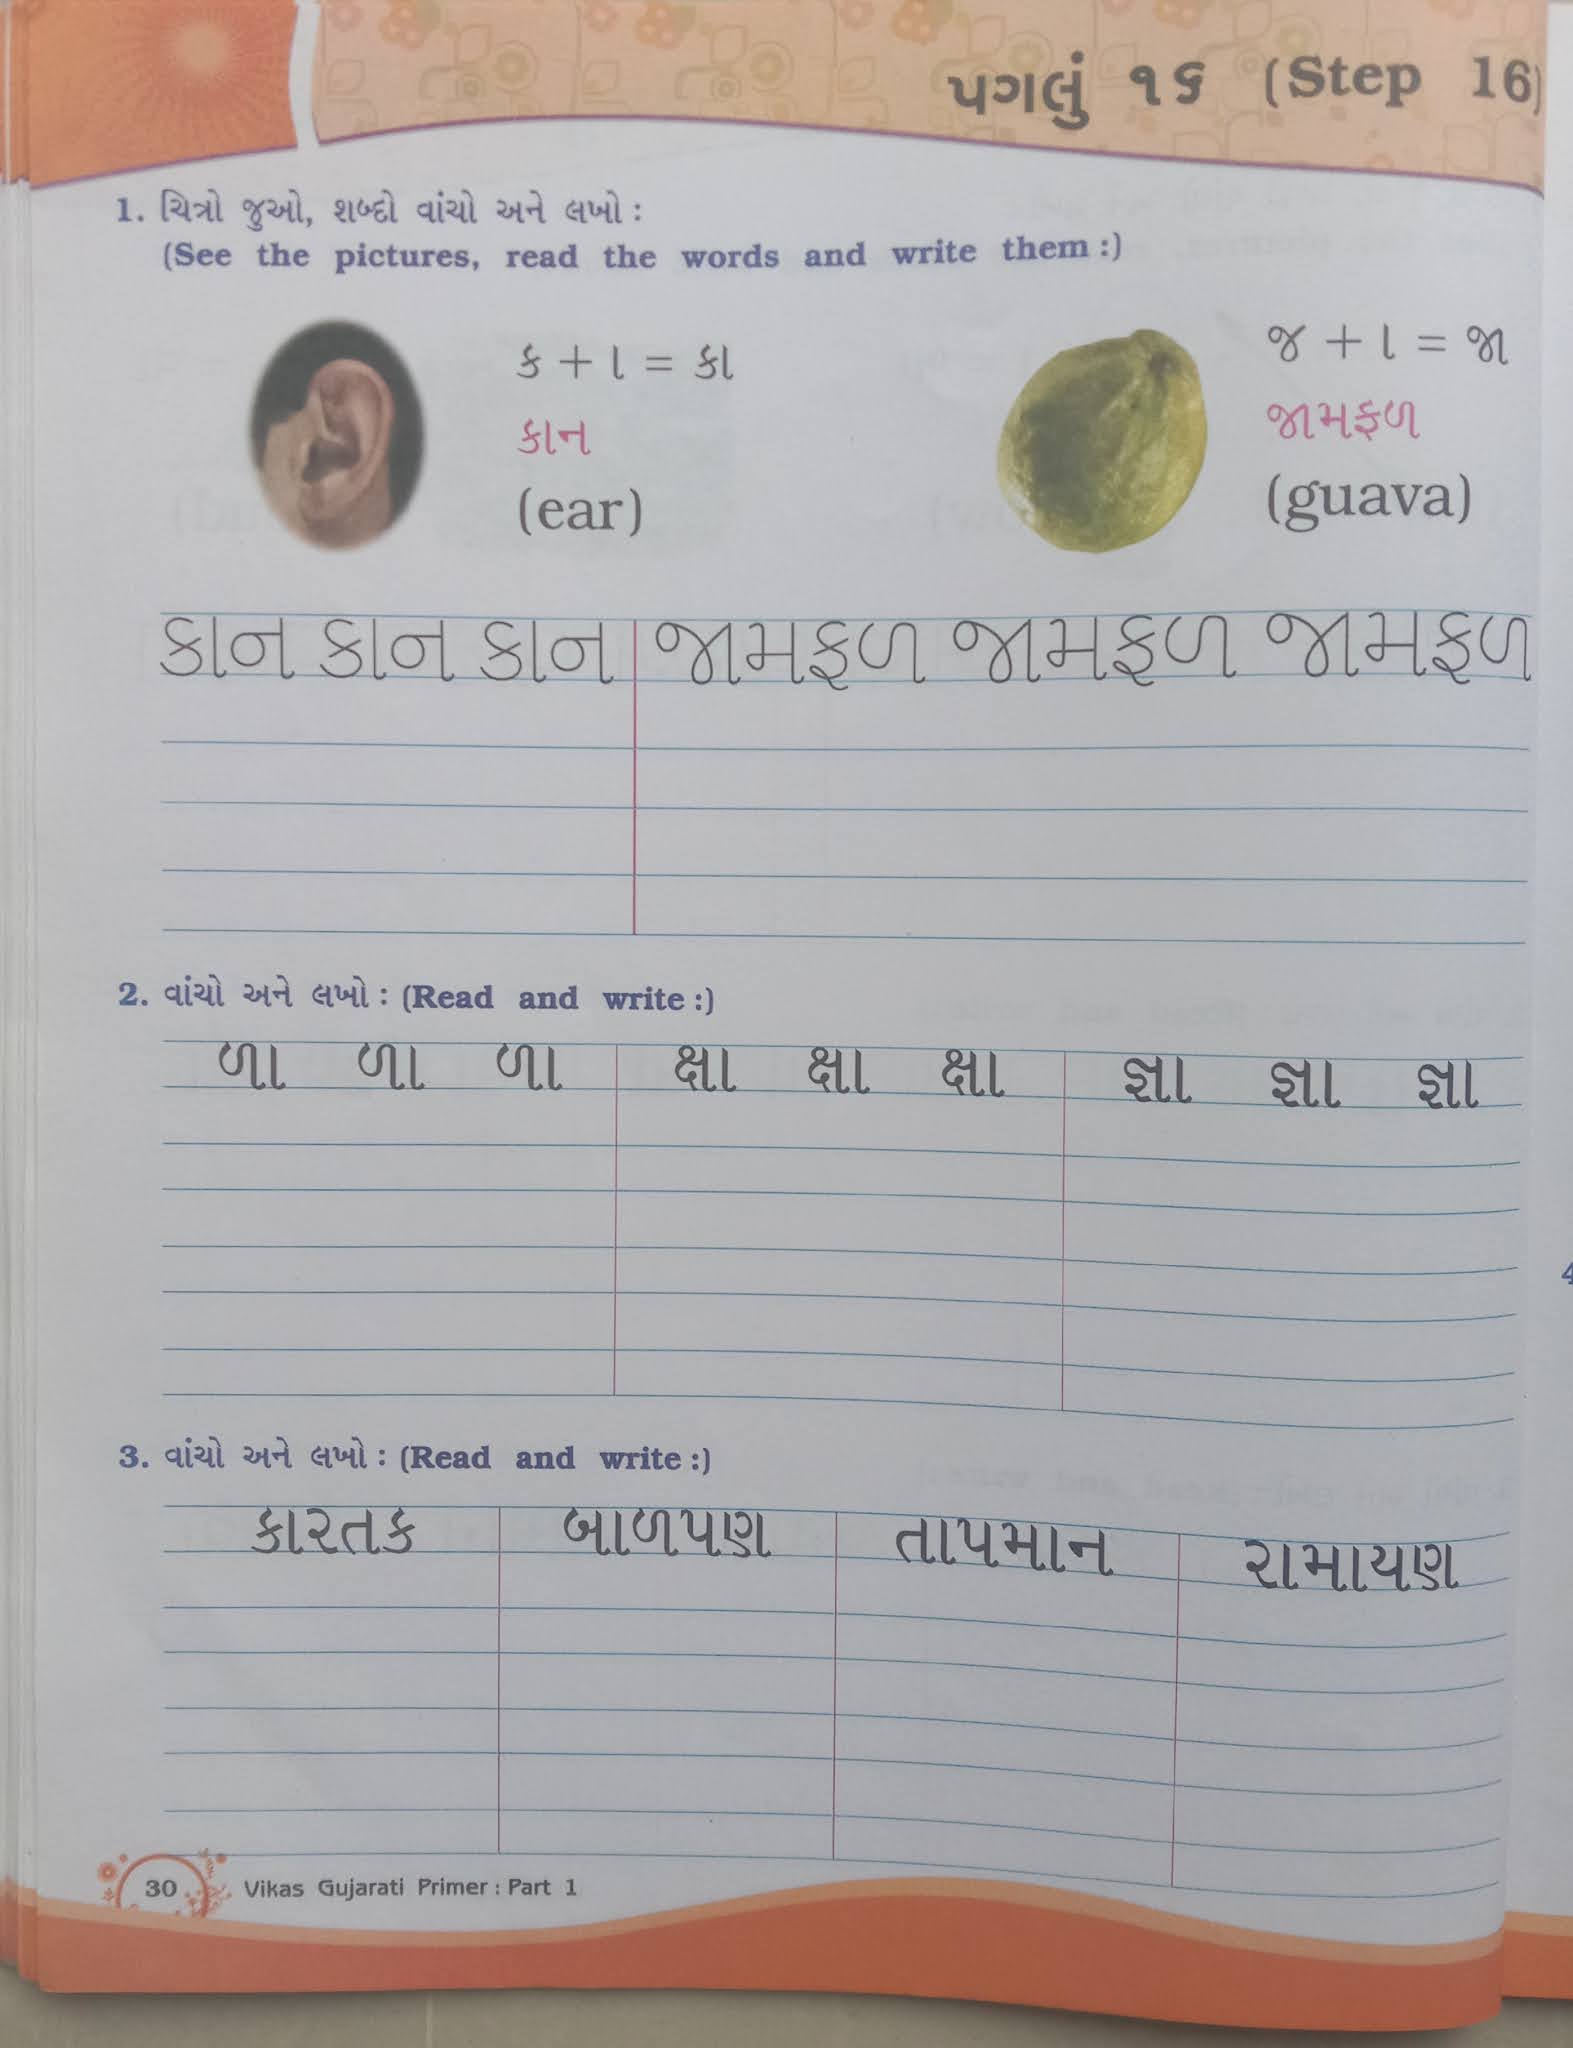 પગલું ૧૬ (Step 16)
1. ચિત્રો જુઓ, શબ્દો વાંચો અને લખો :
(See the pictures, read the words and write them :)
ક + ા = કા
કાન
(ear)
જ + ા = જા
જામફળ
(guava)
કાન કાન કાન જામફળ જામફળ જામફળ
2. વાંચો અને લખો : (Read and write :)
ળા ળા ળા ક્ષા ક્ષા ક્ષા જ્ઞા જ્ઞા જ્ઞા
3. વાંચો અને લખો : (Read and write :)
કારતક બાળપણ તાપમાન રામાયણ
30 Vikas Gujarati Primer : Part 1